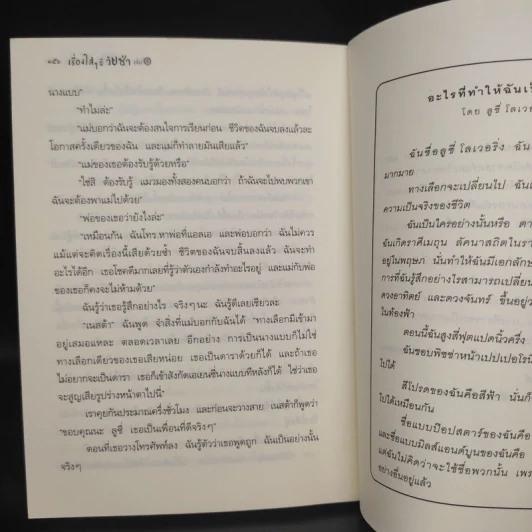 ๑๕๖ เรื่องใสๆ ของ วัยซ่า เล่ม ๑
นางแบบ"
"ทำไมล่ะ"
"แม่บอกว่าฉันจะต้องสนใจการเรียนก่อน ชีวิตของฉันจบลงแล้วละ
โอกาสครั้งเดียวของฉัน และแม่ก็ทำลายมันเสียแล้ว"
"แม่ของเธอต้องรับรู้ด้วยหรือ"
"ใช่สิ ต้องรับรู้ แมวมองทั้งสองคนบอกว่า ถ้าฉันจะไปพบพวกเขา
ฉันจะต้องพาแม่ไปด้วย"
"พ่อของเธอว่ายังไงล่ะ"
"เหมือนกัน ฉันโทร.หาพ่อที่แอลเอ และพ่อบอกว่า ฉันไม่ควร
แม้แต่จะคิดเรื่องนี้เสียด้วยซ้ำ ชีวิตของฉันจบสิ้นลงแล้ว ฉันจะทำ
อะไรได้อีก เธอโชคดีมากเลยที่รู้ว่าตัวเองกำลังทำอะไรอยู่ และแม่กับพ่อ
ของเธอก็คงจะไม่ห้ามด้วย"
ฉันรู้ว่าเธอรู้สึกอย่างไร จริงๆ นะ ฉันรู้ดีเลยเชียวละ
"เนสต้า" ฉันพูด จำสิ่งที่แม่บอกกับฉันได้ "ทางเลือกมีเข้ามา
อยู่เสมอแหละ ตลอดเวลาเลย อีกอย่าง การเป็นนางแบบก็ไม่ใช่
ทางเลือกเดียวของเธอเสียหน่อย เธอเป็นดาราด้วยก็ได้ และถ้าเธอ
ไม่อยากจะเป็นดารา เธอก็เข้าสังกัดเอเยนซี่นางแบบทีหลังก็ได้ ใช่ว่าเธอ
จะสูญเสียรูปร่างหน้าตาไปนี่"
เราคุยกันประมาณครึ่งชั่วโมง และก่อนจะวางสาย เนสต้าก็พูดว่า
"ขอบคุณนะ ลูซี่ เธอเป็นเพื่อนที่ดีจริงๆ"
ตอนที่เธอวางโทรศัพท์ลง ฉันรู้ตัวว่าเธอพูดถูก ฉันเป็นอย่างนั้น
จริงๆ
อะไรที่ทำให้ฉันเป็
โดย ลูซี่ โลเวอ
ฉันชื่อลูซี่ โลเวอริ่ง ฉัน
มากมาย
ทางเลือกจะเปลี่ยนไป ฉันเ
ความเป็นจริงของชีวิต
ฉันเป็นใครอย่างนั้นหรือ ตา
ฉันเกิดราศีเมถุน ลัคนาสถิตในรา
อยู่ในพฤษภ นั่นทำให้ฉันมีเอกลักษ
การที่ฉันรู้สึกอย่างไรสามารถเปลี่ยน
ดวงอาทิตย์ และดวงจันทร์ ขึ้นอยู่ว่
ในท้องฟ้า
ตอนนี้ฉันสูงสี่ฟุตแปดนิ้วครึ่ง
ฉันชอบพิซซ่าหน้าเปปเปอโรนี
ไปได้
สีโปรดของฉันคือสีฟ้า นั่นก็
ไปได้เหมือนกัน
ชื่อแบบป๊อปสตาร์ของฉันคือ
และชื่อแบบมิลส์แอนด์บูนของฉันคือ
แต่ฉันไม่คิดว่าจะใช้ชื่อพวกนั้น เพร
อย่างอื่นอยู่แล้ว